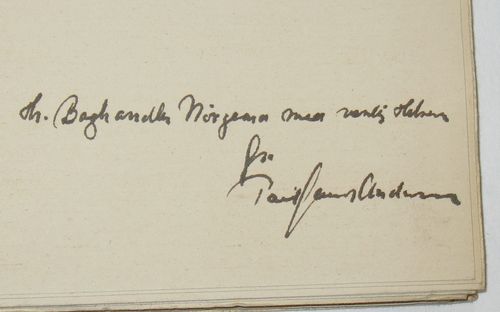 Hr. Boghandler Nörgaard med venlig Hilsen
fra
Andersen